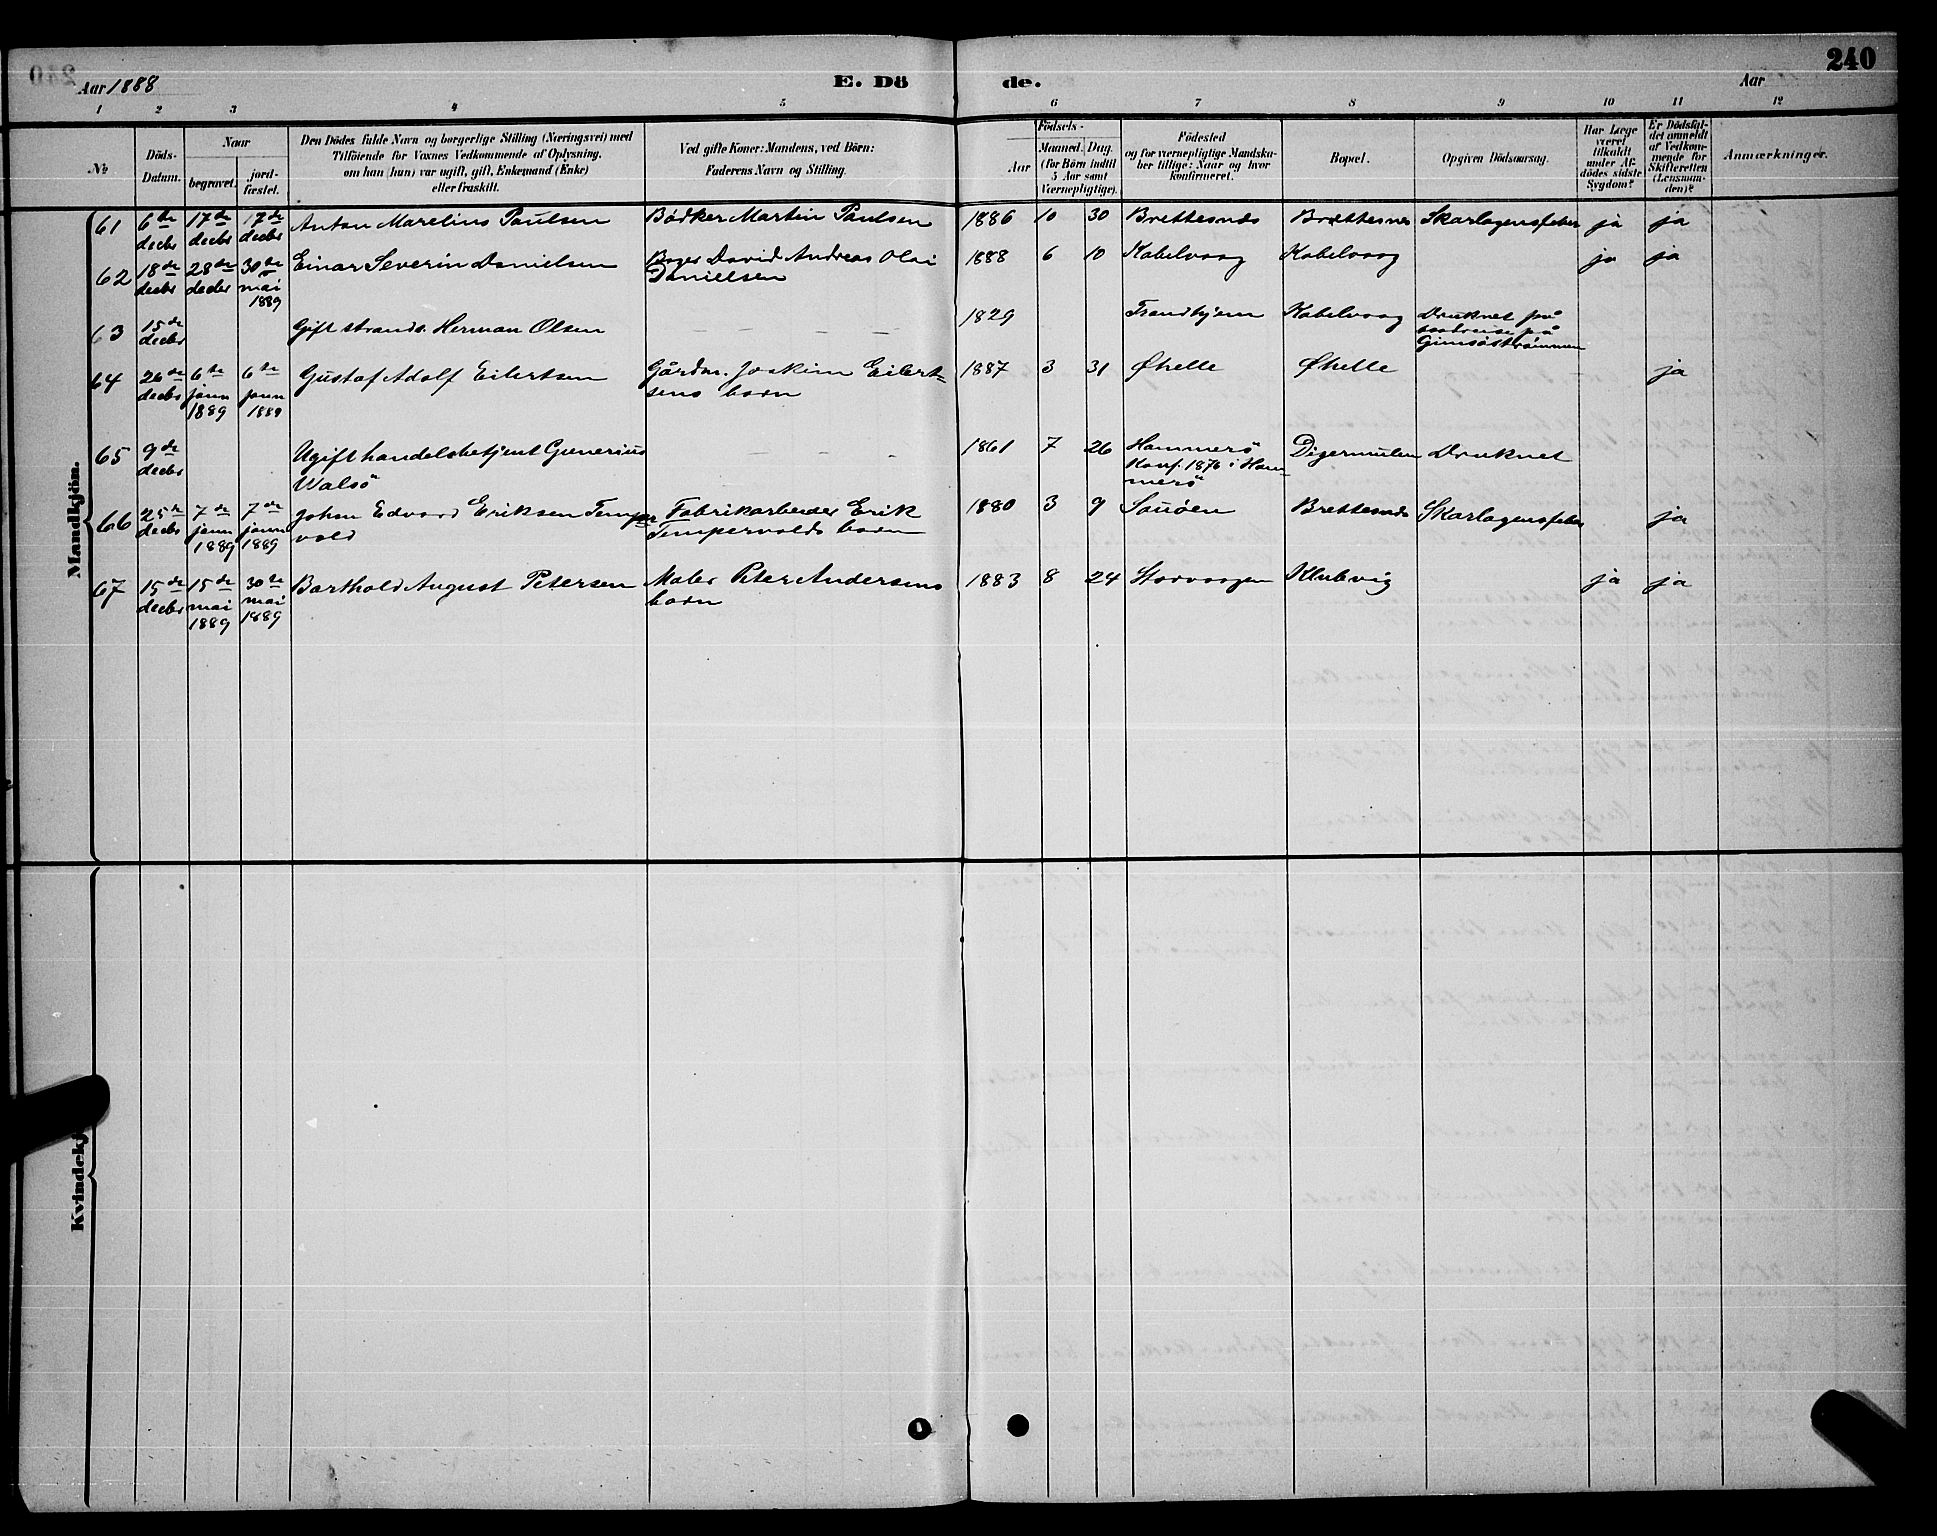 240
Aar 1888
E. Dö de.
Aar
1 2 3 4 5 6 7 8 9 10 11 12
No
Döds-Datum.
Naar
begravet.
jord-fæstet.
Den Dödes fulde Navn og borgerlige Stilling (Næringsvei) med
Tilföiende for Voxnes Vedkommende af Oplysning,
om han (hun) var ugift, gift, Enkemand (Enke)
eller fraskilt.
Ved gifte Koner: Mandens, ved Börn:
Faderens Navn og Stilling.
Födsels-
Aar
Maaned. Dag.
(for Börn indtil
5 Aar samt
Værnepligtige).
Födested
og for værnepligtige Mandska-
ber tillige: Naar og hvor
konfirmeret.
Bopæl.
Opgiven Dödsaarsag.
Har Læge
været
tilkaldt
under Af-
dödes sidste
Sygdom?
Er Dödsfal-
det anmeldt
af Vedkom-
mende for
Skifteretten
(Lensman-
den)?
Anmærkninger.
Mandkjön.
61 6te decbr 17de decbr 17de decbr Anton Marelius Paulsen Bödker Martin Paulsen 1886 10 30 Brettesnæs Brættesnes Skarlagensfeber ja ja
62 18de decbr 28de decbr 30te mai 1889 Einar Severin Danielsen Bager David Andreas Olai Danielsen 1888 6 10 Kabelvaag Kabelvaag ja ja
63 15de decbr Gift strands. Herman Olsen – – – – 1829 Trondhjem Kabelvaag Druknet på
Gimsöströmmen
64 26de decbr 6te janu 1889 6te janu 1889 Gustaf Adolf Eilertsen Gårdm. Joakim Eilert-
sens barn 1887 3 31 Øhelle Øhelle ja
65 9de decbr Ugift handelsbetjent Gunerius
Walsö – – – – 1861 7 26 Hammerö
Konf. 1876 i Ham-
merö Digermulen Druknet
66 25de decbr 7de janu 1889 7de janu 1889 Johan Edvard Eriksen Temper
vold Fabrikarbeider Erik
Tempervolds barn 1880 3 9 Sauöen Brettesnæs Skarlagensfeber ja
67 15de decbr 15de mai 1889 30te mai 1889 Barthold August Petersen Maler Peter Andersens
barn 1883 8 24 Storvaagen Klubvig ja ja
Kvindekj